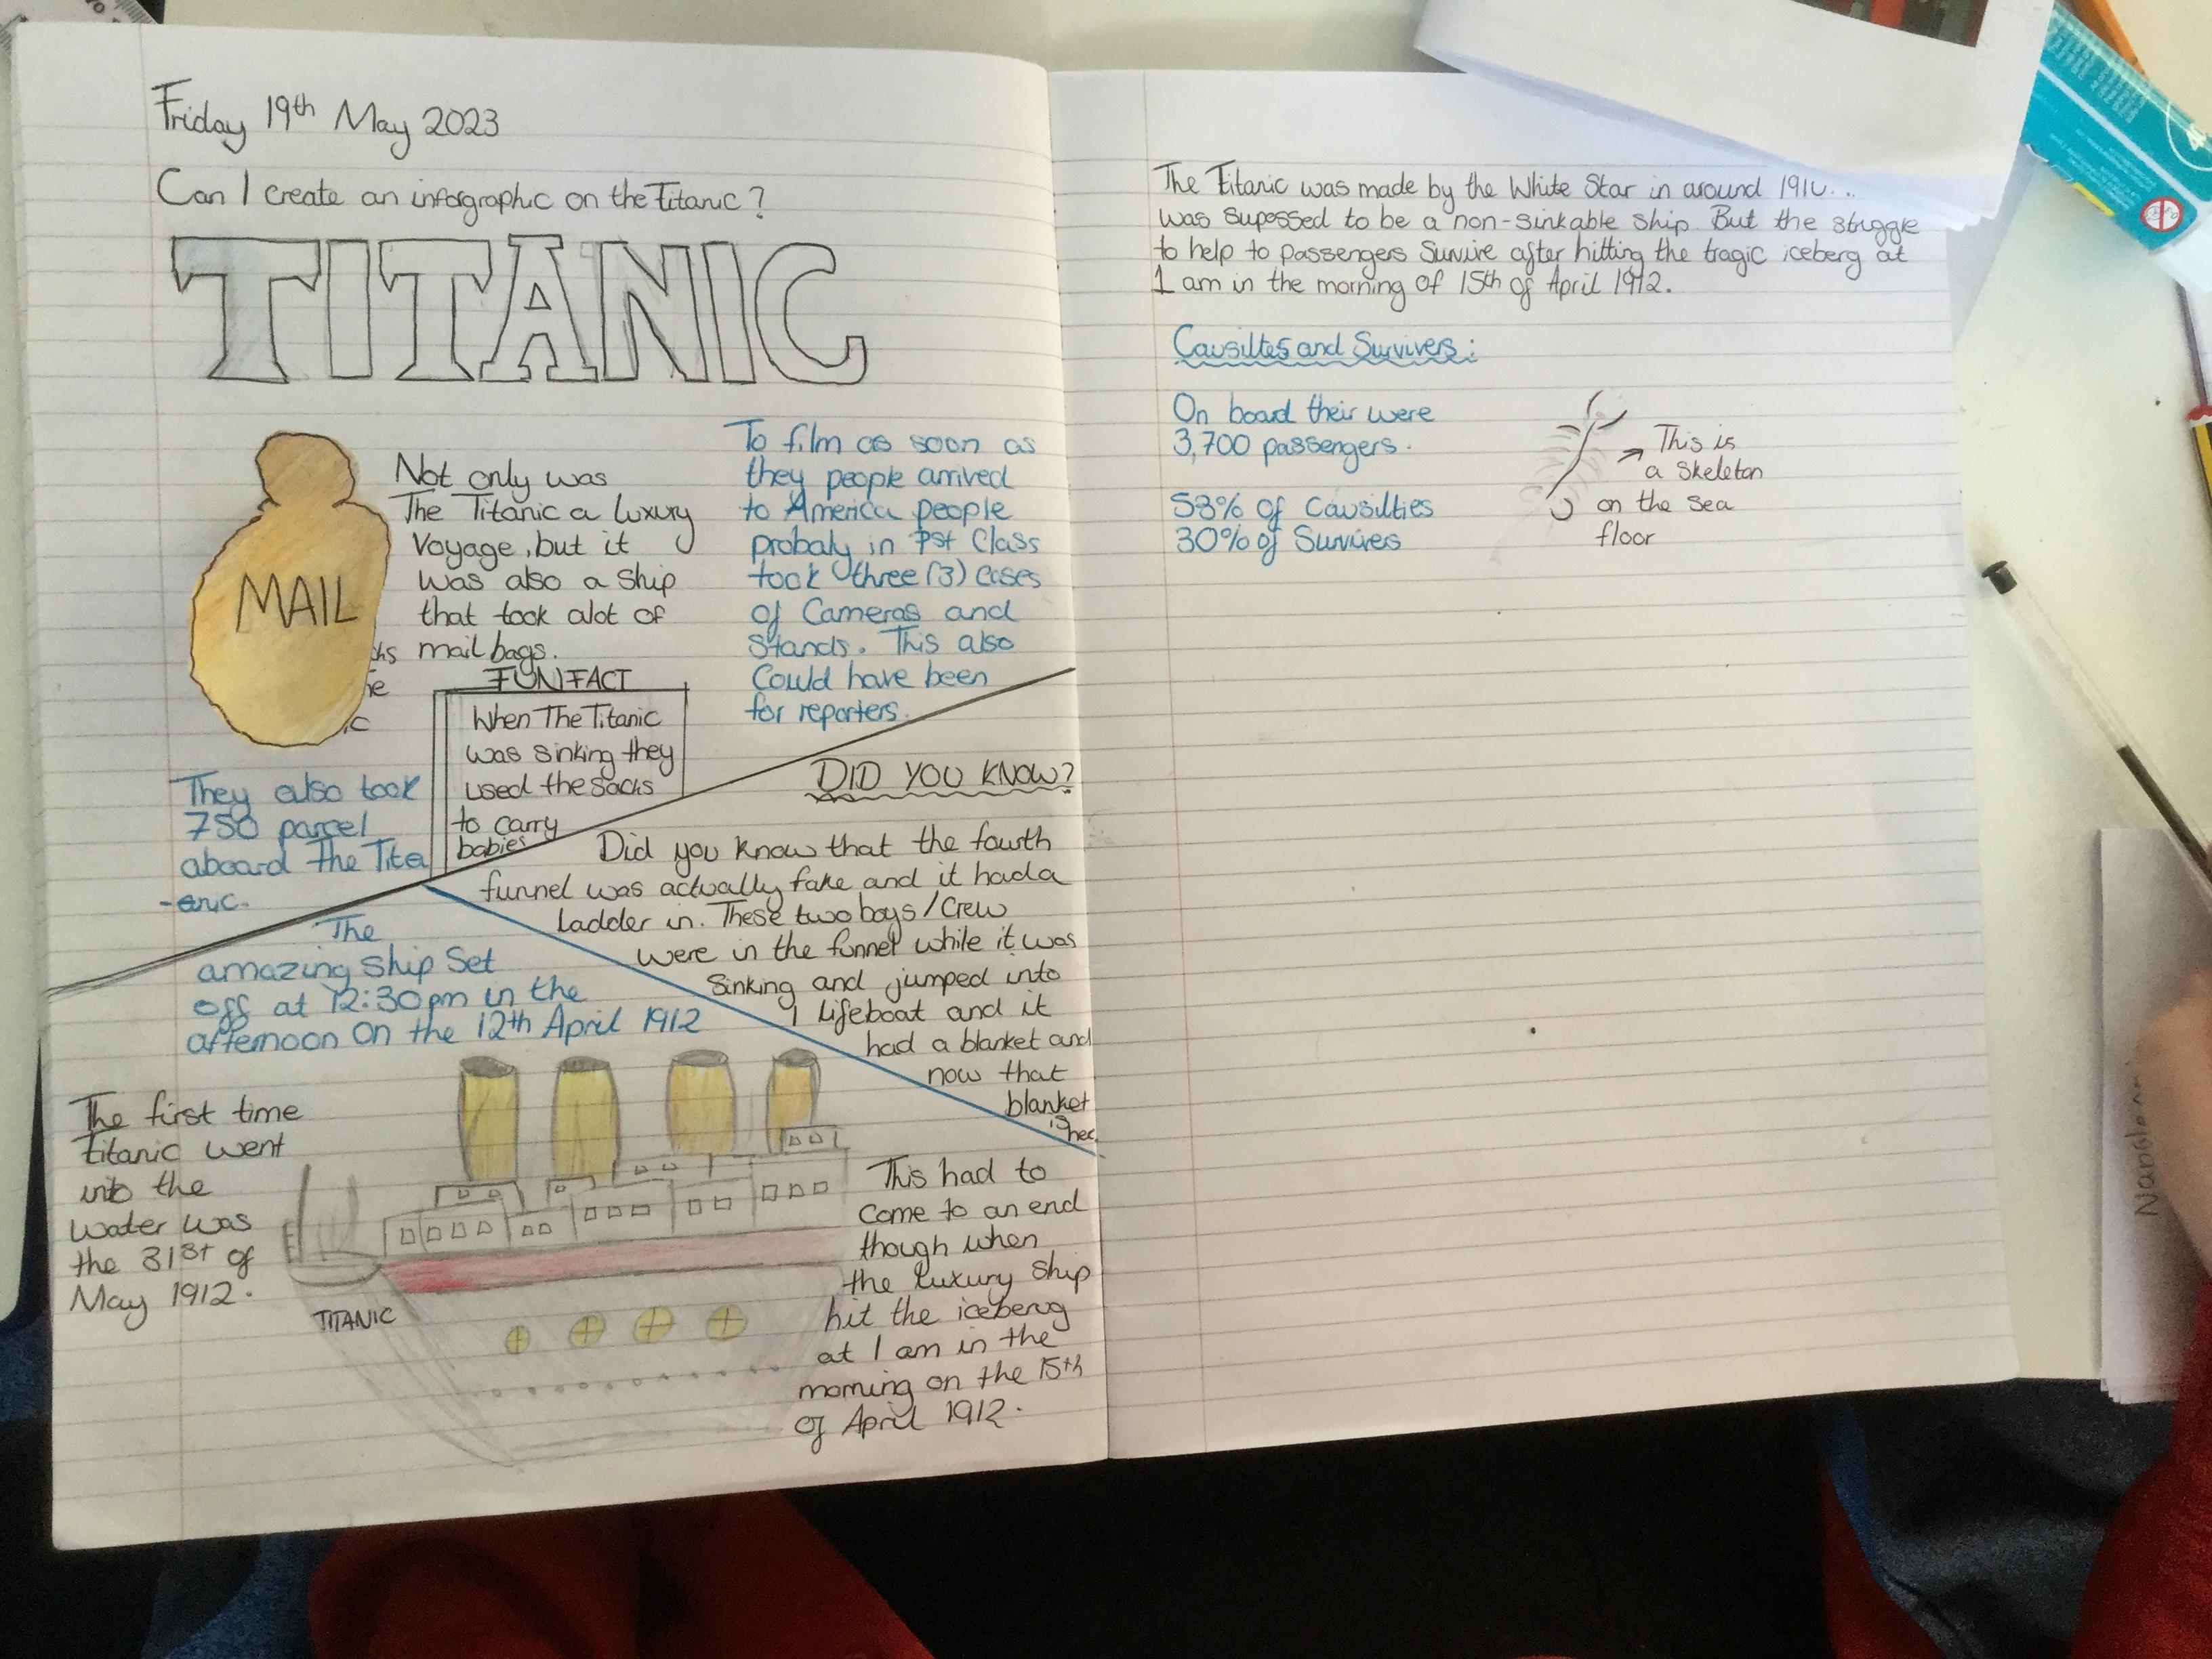 Friday 19th May 2023
Can I create an infographic on the Titanic?
TITANIC
MAIL
Not only was
The Titanic a luxury
Voyage, but it
was also a ship
that took alot of
mail bags.
They also took
750 parcel
aboard the Tita
-anic.
FUN FACT
When The Titanic
was sinking they
used the sacks
to carry
babies
To film as soon as
they people arrived
to America people
probaly in 1st Class
took three (3) cases
of Cameras and
Stands. This also
Could have been
for reporters.
DID YOU KNOW?
Did you know that the fourth
funnel was actually fake and it had a
ladder in. These two boys/Crew
were in the funnel while it was
Sinking and jumped into
1 lifeboat and it
had a blanket and
now that
blanket
is
The
amazing ship Set
off at 12:30pm in the
afternoon on the 12th April 1912
The first time
Titanic went
into the
water was
the 31st of
May 1912.
TITANIC
This had to
come to an end
though when
the luxury ship
hit the iceberg
at 1 am in the
morning on the 15th
of April 1912.
The Titanic was made by the White Star in around
was supossed to be a non-sinkable ship. But the struggle
to help to passengers Survive after hitting the tragic iceberg at
1 am in the morning of 15th of April 1912.
Causiltes and Survivers:
On board their were
3,700 passengers.
58% of Causilties
30% of Survivers
This is
a skeleton
on the sea
floor